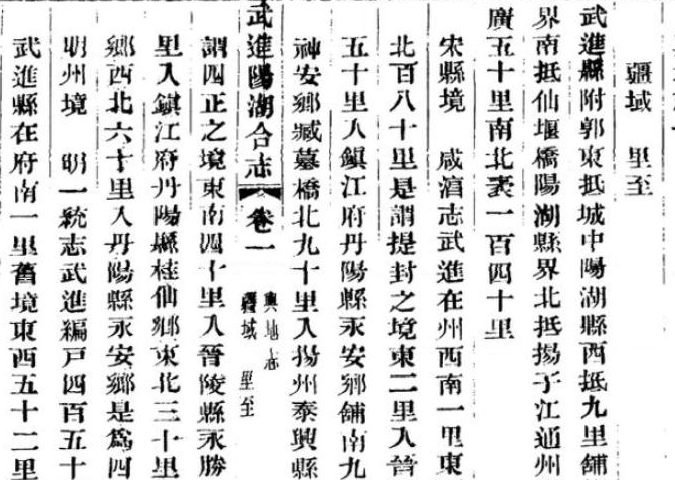 疆域 里至
武進縣附郭東抵城中陽湖縣西抵九里舖
界南抵仙堰橋陽湖縣界北抵揚子江通州
廣五十里南北袤一百四十里
宋縣境 咸湻志武進在州西南一里東
北百八十里是謂提封之境東二里入晉
五十里入鎮江府丹陽縣永安鄉舖南九
神安鄉臧墓橋北九十里入揚州泰興縣
武進陽湖合志 卷一 輿地志
疆域 里至
謂四正之境東南四十里入晉陵縣永勝
里入鎮江府丹陽縣桂仙鄉東北三十里
鄉西北六十里入丹陽縣永安鄉是為四
明州境 明一統志武進編戶四百五十
武進縣在府南一里舊境東西五十二里